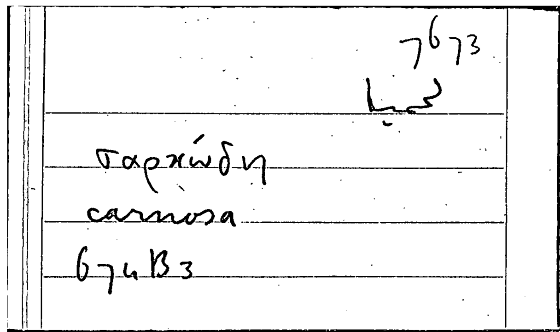 7673
لحم
σαρκώδη
carnosa
674 B 3